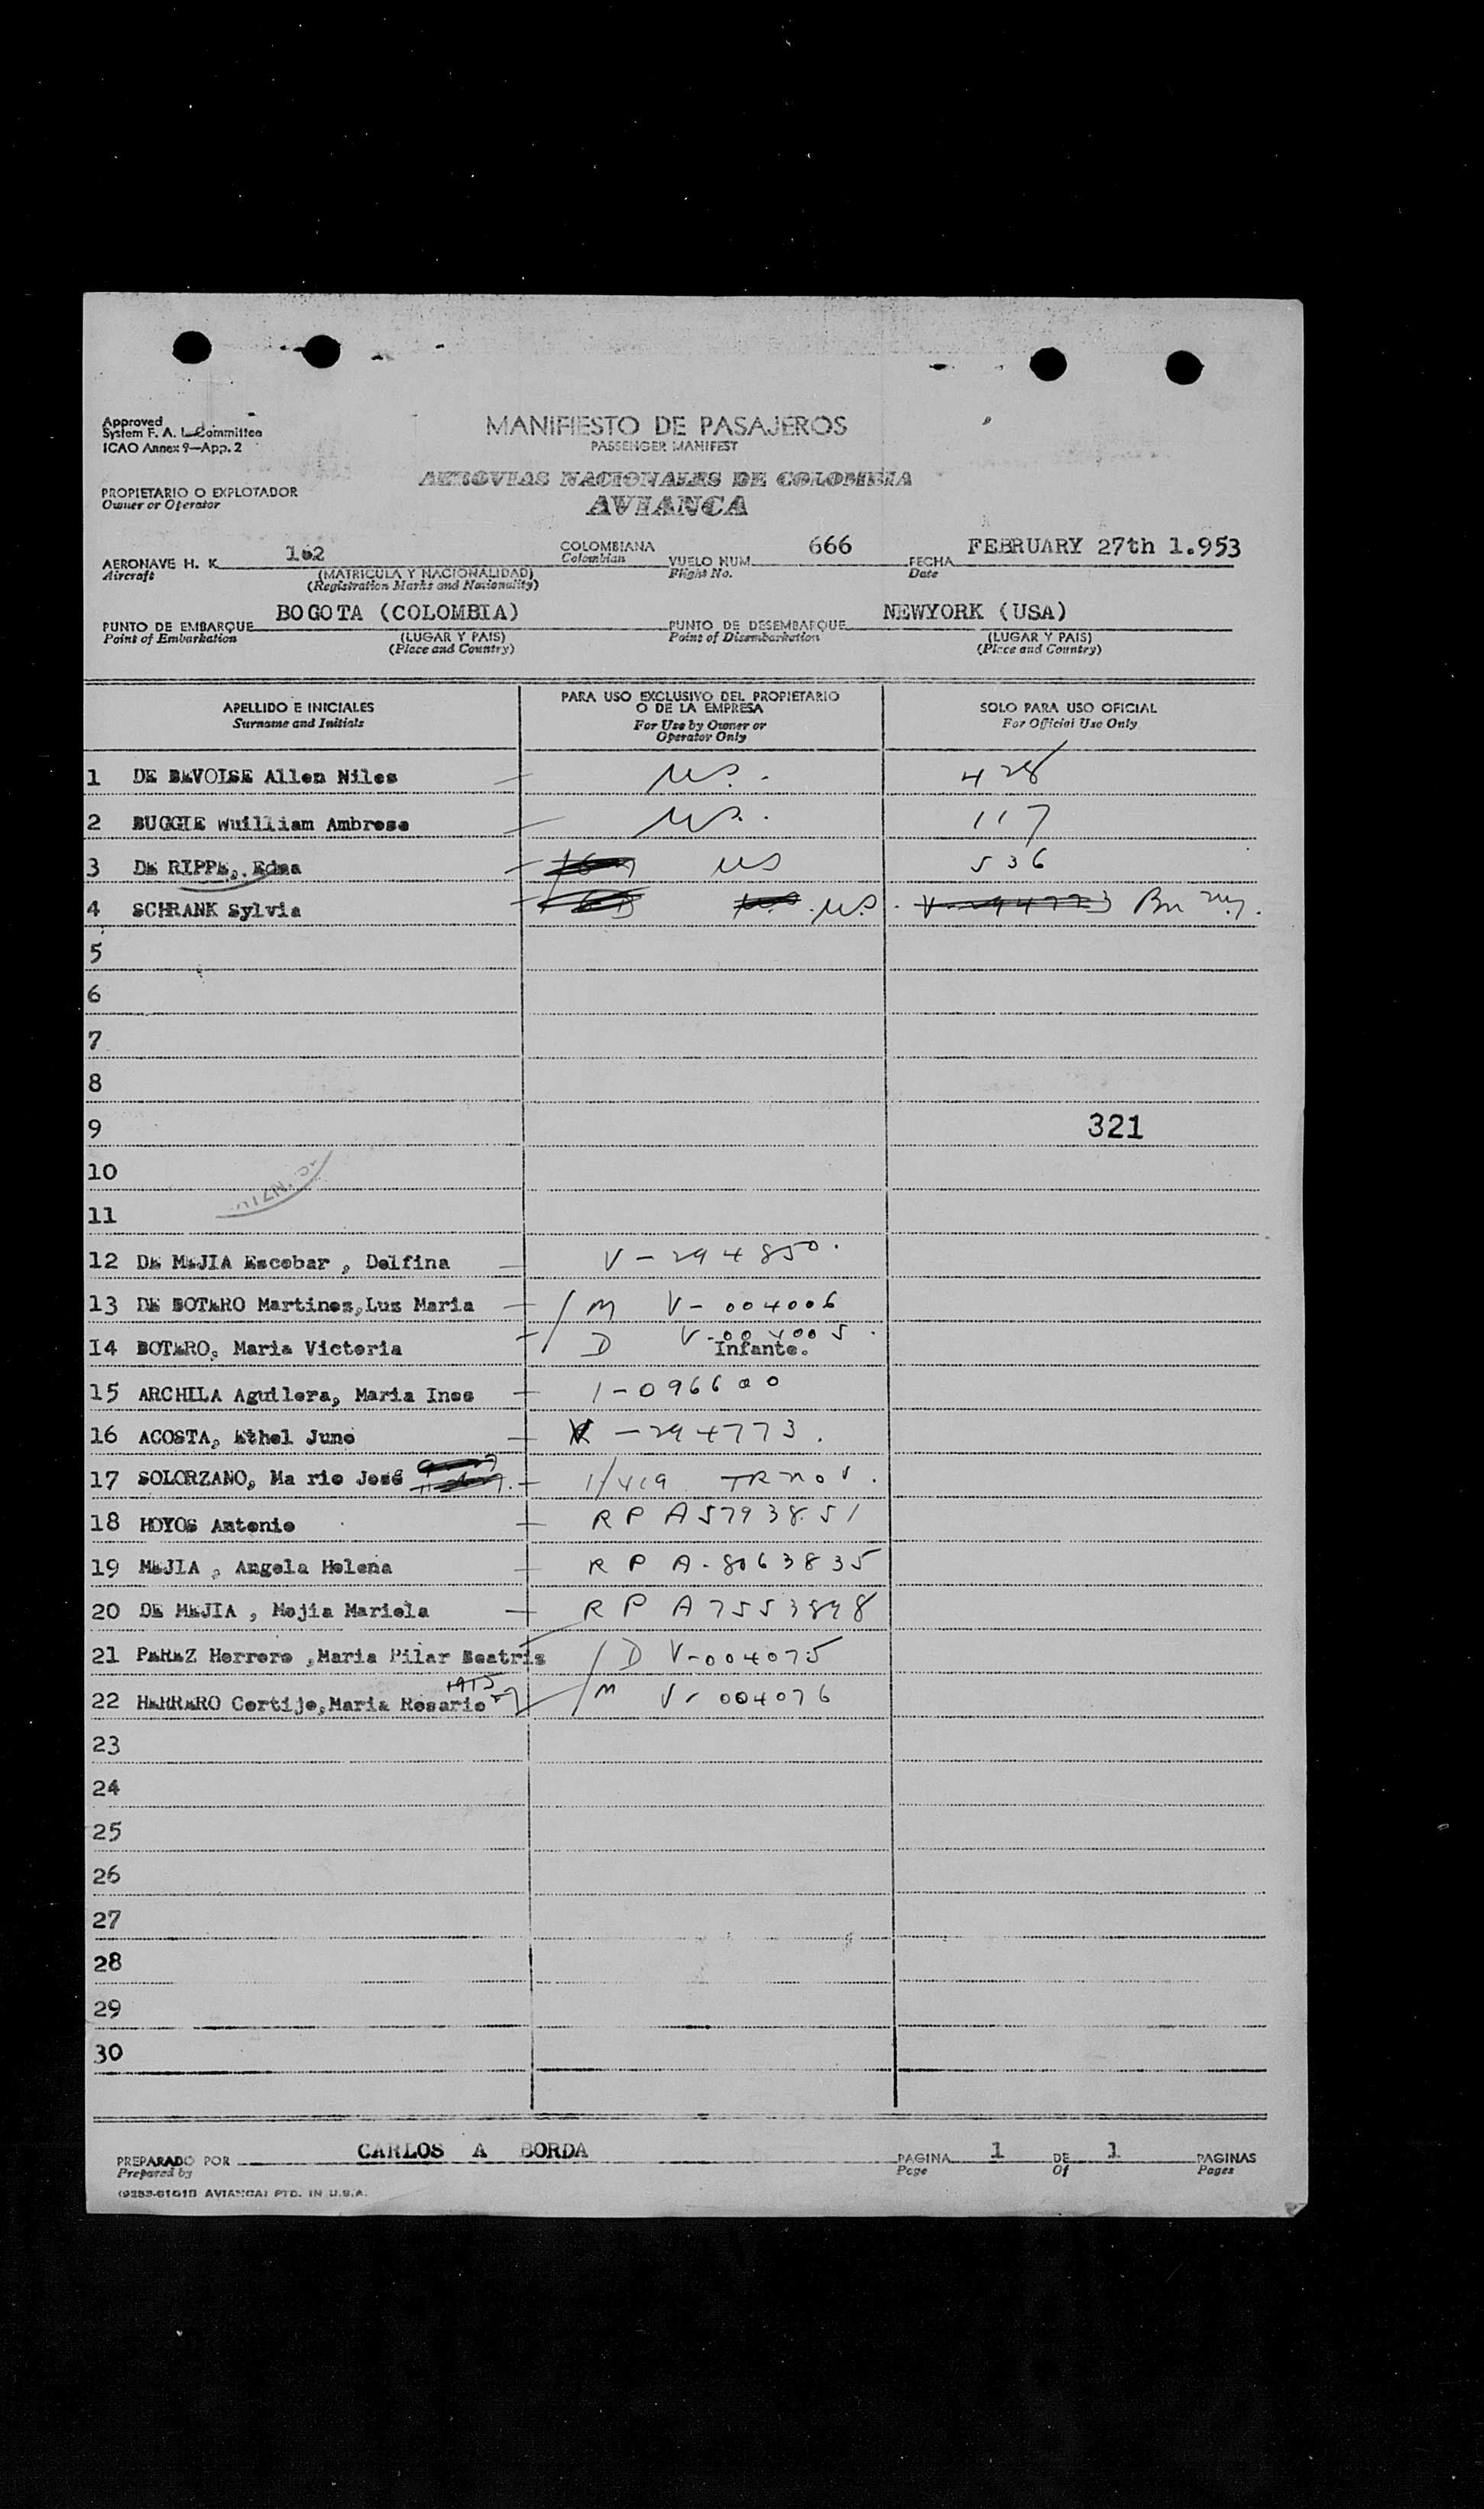 Approved
System F. A. L. Committee
ICAO Annex 9—App. 2
MANIFIESTO DE PASAJEROS
PASSENGER MANIFEST
AEROVIAS NACIONALES DE COLOMBIA
AVIANCA
PROPIETARIO O EXPLOTADOR
Owner or Operator
AERONAVE H. K. 162 COLOMBIANA VUELO NUM. 666 FECHA FEBRUARY 27th 1.953
Aircraft (MATRICULA Y NACIONALIDAD) Colombian Flight No. Date
(Registration Marks and Nationality)
PUNTO DE EMBARQUE BOGOTA (COLOMBIA) PUNTO DE DESEMBARQUE NEWYORK (USA)
Point of Embarkation (LUGAR Y PAIS) Point of Disembarkation (LUGAR Y PAIS)
(Place and Country) (Place and Country)
APELLIDO E INICIALES PARA USO EXCLUSIVO DEL PROPIETARIO O DE LA EMPRESA SOLO PARA USO OFICIAL
Surname and Initials For Use by Owner or Operator Only For Official Use Only
1 DE BEVOISE Allen Niles US. 428
2 BUGGIE Wuilliam Ambrose US. 117
3 DE RIPPE, Edna US 536
4 SCHRANK Sylvia US. V-294773
5
6
7
8
9 321
10
11
12 DE MEJIA Escobar , Delfina V-294850.
13 DE BOTERO Martines, Luz Maria M V-004006
14 BOTERO, Maria Victoria D V-004005.
Infante.
15 ARCHILA Aguilera, Maria Ines 1-096600
16 ACOSTA, Ethel June V-294773.
17 SOLORZANO, Ma rio José
18 HOYOS Antonio RP A5793851
19 MEJIA , Angela Helena RP A-8063835
20 DE MEJIA , Mejia Mariela RP A7553898
21 PEREZ Herrero ,Maria Pilar Beatriz D V-004075
22 HERRERO Cortijo,Maria Rosario M V-004076
23
24
25
26
27
28
29
30
PREPARADO POR CARLOS A BORDA PAGINA 1 DE 1 PAGINAS
Prepared by Page Of Pages
AVIANCA) PTD. IN U.S.A.